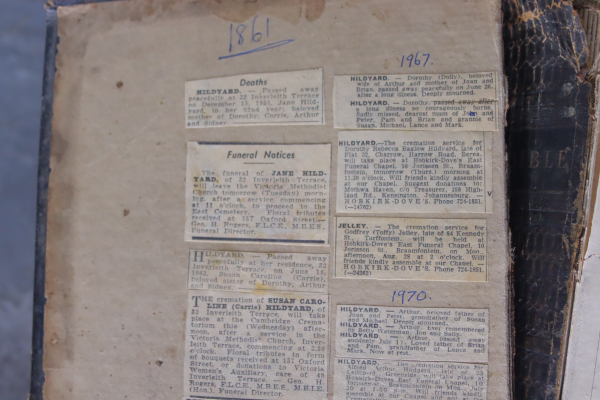 1861
Deaths
HILDYARD. — Passed away
peacefully at 32 Inverleith Terrace
on December 13, 1961, Jane Hild-
yard, in her 92nd year, beloved
mother of Dorothy, Carrie, Arthur
and Sidney.
Funeral Notices
The funeral of JANE HILD-
YARD, of 32 Inverleith-Terrace,
will leave the Victoria Methodist
Church tomorrow (Tuesday) morn-
ing, after a service commencing
at 11 o'clock, to proceed to the
East Cemetery. Floral tributes
received at 157 Oxford Street.—
Geo. H. Rogers, F.L.C.E., M.B.E.S.
Funeral Director.
HILDYARD. Passed away
peacefully at her residence, 32
Inverleith Terrace, on June 18,
1962, Susan Caroline (Carrie),
beloved sister of Dorothy, Arthur
and Sidney.
THE cremation of SUSAN CARO-
LINE (Carrie) HILDYARD, of
32 Inverleith Terrace, will take
place at the Cambridge Crema-
torium this (Wednesday) after-
noon, after a service in the
Victoria Methodist Church, Inver-
leith Terrace, commencing at 2.30
o'clock. Floral tributes in form
of bouquets received at 157 Oxford
Street, or donations to Victoria
Women's Auxiliary, care of 48
Inverleith Terrace — Geo. H.
Rogers, F.L.C.E., M.B.E.S., M.B.I.E.
(Hon.), Funeral Director.
1967.
HILDYARD. — Dorothy (Dolly), beloved
wife of Arthur and mother of Joan and
Brian, passed away peacefully on June 26,
after a long illness. Deeply mourned.
HILDYARD. — Dorothy, passed away after
a long illness so courageously borne.
Sadly missed, dearest mum of Joan and
Peter, Pam and Brian and grannie of
Susan, Michael, Lance and Mark.
HILDYARD.—The cremation service for
Dorothy Rebecca Eagles Hildyard, late of
Flat 52, Charrow, Harrow Road, Berea,
will take place at Hobkirk-Dove's East
Funeral Chapel, 10 Jorissen St., Braam-
fontein, tomorrow (Thurs.) morning at
11.30 o'clock. Will friends kindly assemble
at our Chapel. Suggest donations to:
Mothwa Haven, c/o Treasurer, 198 High-
land Rd., Kensington, Johannesburg. —
HOBKIRK-DOVE'S. Phone 724-1831.
—14762)
JELLEY. — The cremation service for
Godfrey (Toffy) Jelley, late of 84 Kennedy
St., Turffontein, will be held at
Hobkirk-Dove's East Funeral Chapel, 10
Jorissen St., Braamfontein, on Mon.
afternoon, Aug. 28 at 2 o'clock. Will
friends kindly assemble at our Chapel.—
HOBKIRK-DOVE'S. Phone 724-1831.
1970.
HILDYARD. — Arthur, beloved father of
Joan and Peter, grandfather of Susan
and Michael. Deeply mourned.
HILDYARD. — Arthur. Ever remembered
HILDYARD. — Arthur, passed away
suddenly July 11. Loved father of Brian
and Pam, grandfather of Lance and
Mark. Now at rest.
HILDYARD.—The cremation service for